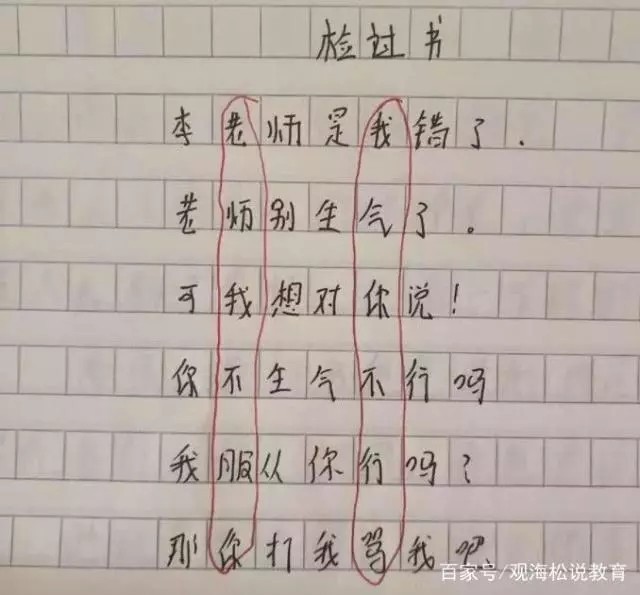 检过书
李老师是我错了.
老师别生气了。
可我想对你说!
你不生气不行吗
我服从你行吗?
那你打我骂我吧、
百家号/观海松说教育